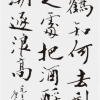 鶴知何去剩
人處把酒酹
潮逐浪高